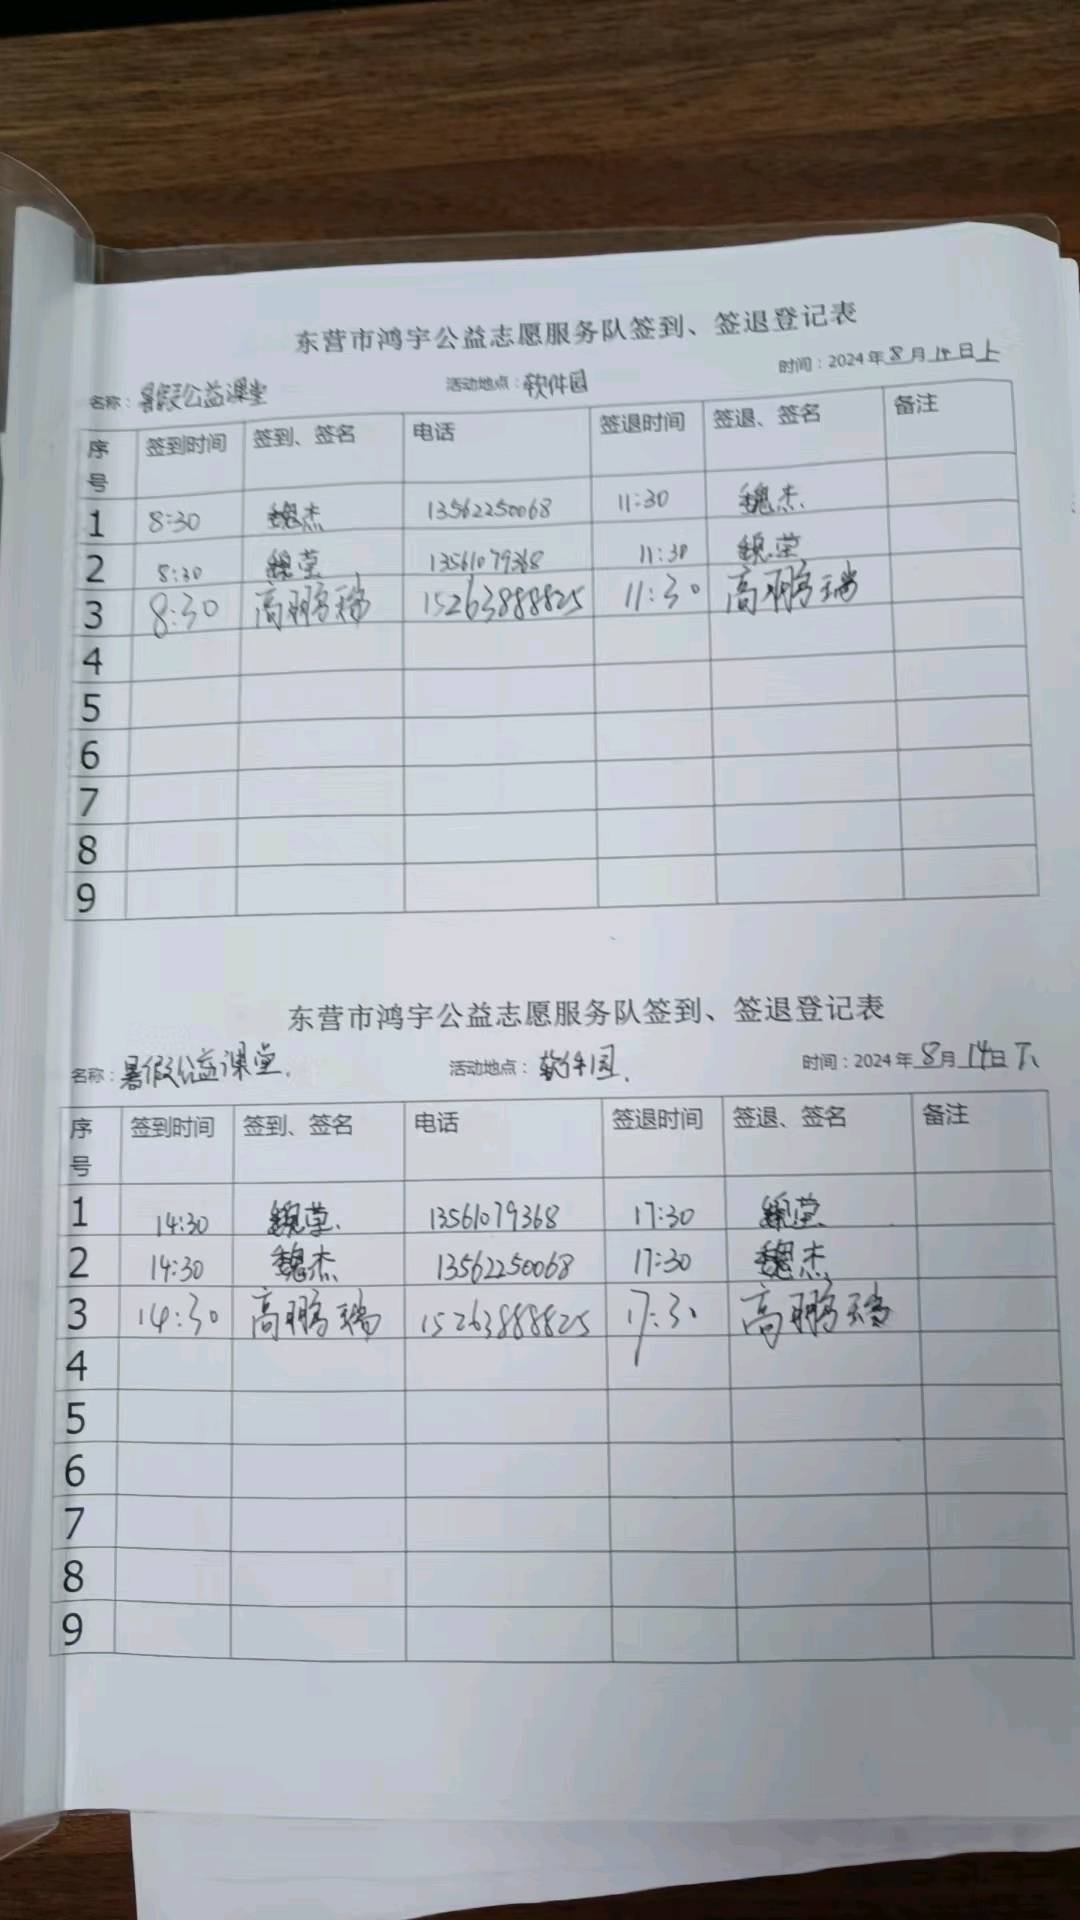 东营市鸿宇公益志愿服务队签到、签退登记表
名称：暑假公益课堂 活动地点：软件园 时间：2024年8月14日上
序号 签到时间 签到、签名 电话 签退时间 签退、签名 备注
1 8:30 魏杰 13562250068 11:30 魏杰
2 8:30 魏莹 13561079368 11:30 魏莹
3 8:30 高鹏瑞 15263888825 11:30 高鹏瑞
4
5
6
7
8
9
东营市鸿宇公益志愿服务队签到、签退登记表
名称：暑假公益课堂. 活动地点：软件园. 时间：2024年8月14日下
序号 签到时间 签到、签名 电话 签退时间 签退、签名 备注
1 14:30 魏莹 13561079368 17:30 魏莹
2 14:30 魏杰 13562250068 17:30 魏杰
3 14:30 高鹏瑞 15263888825 17:30 高鹏瑞
4
5
6
7
8
9